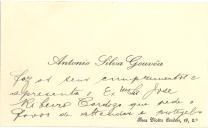 Antonio Silva Gouvêa
faz os seus cumprimentos e
apresenta o Exmo Sr José
Ribeiro Cardozo que pede o
favor de attender e protegel-o
Rua Victor Cordon, 2º